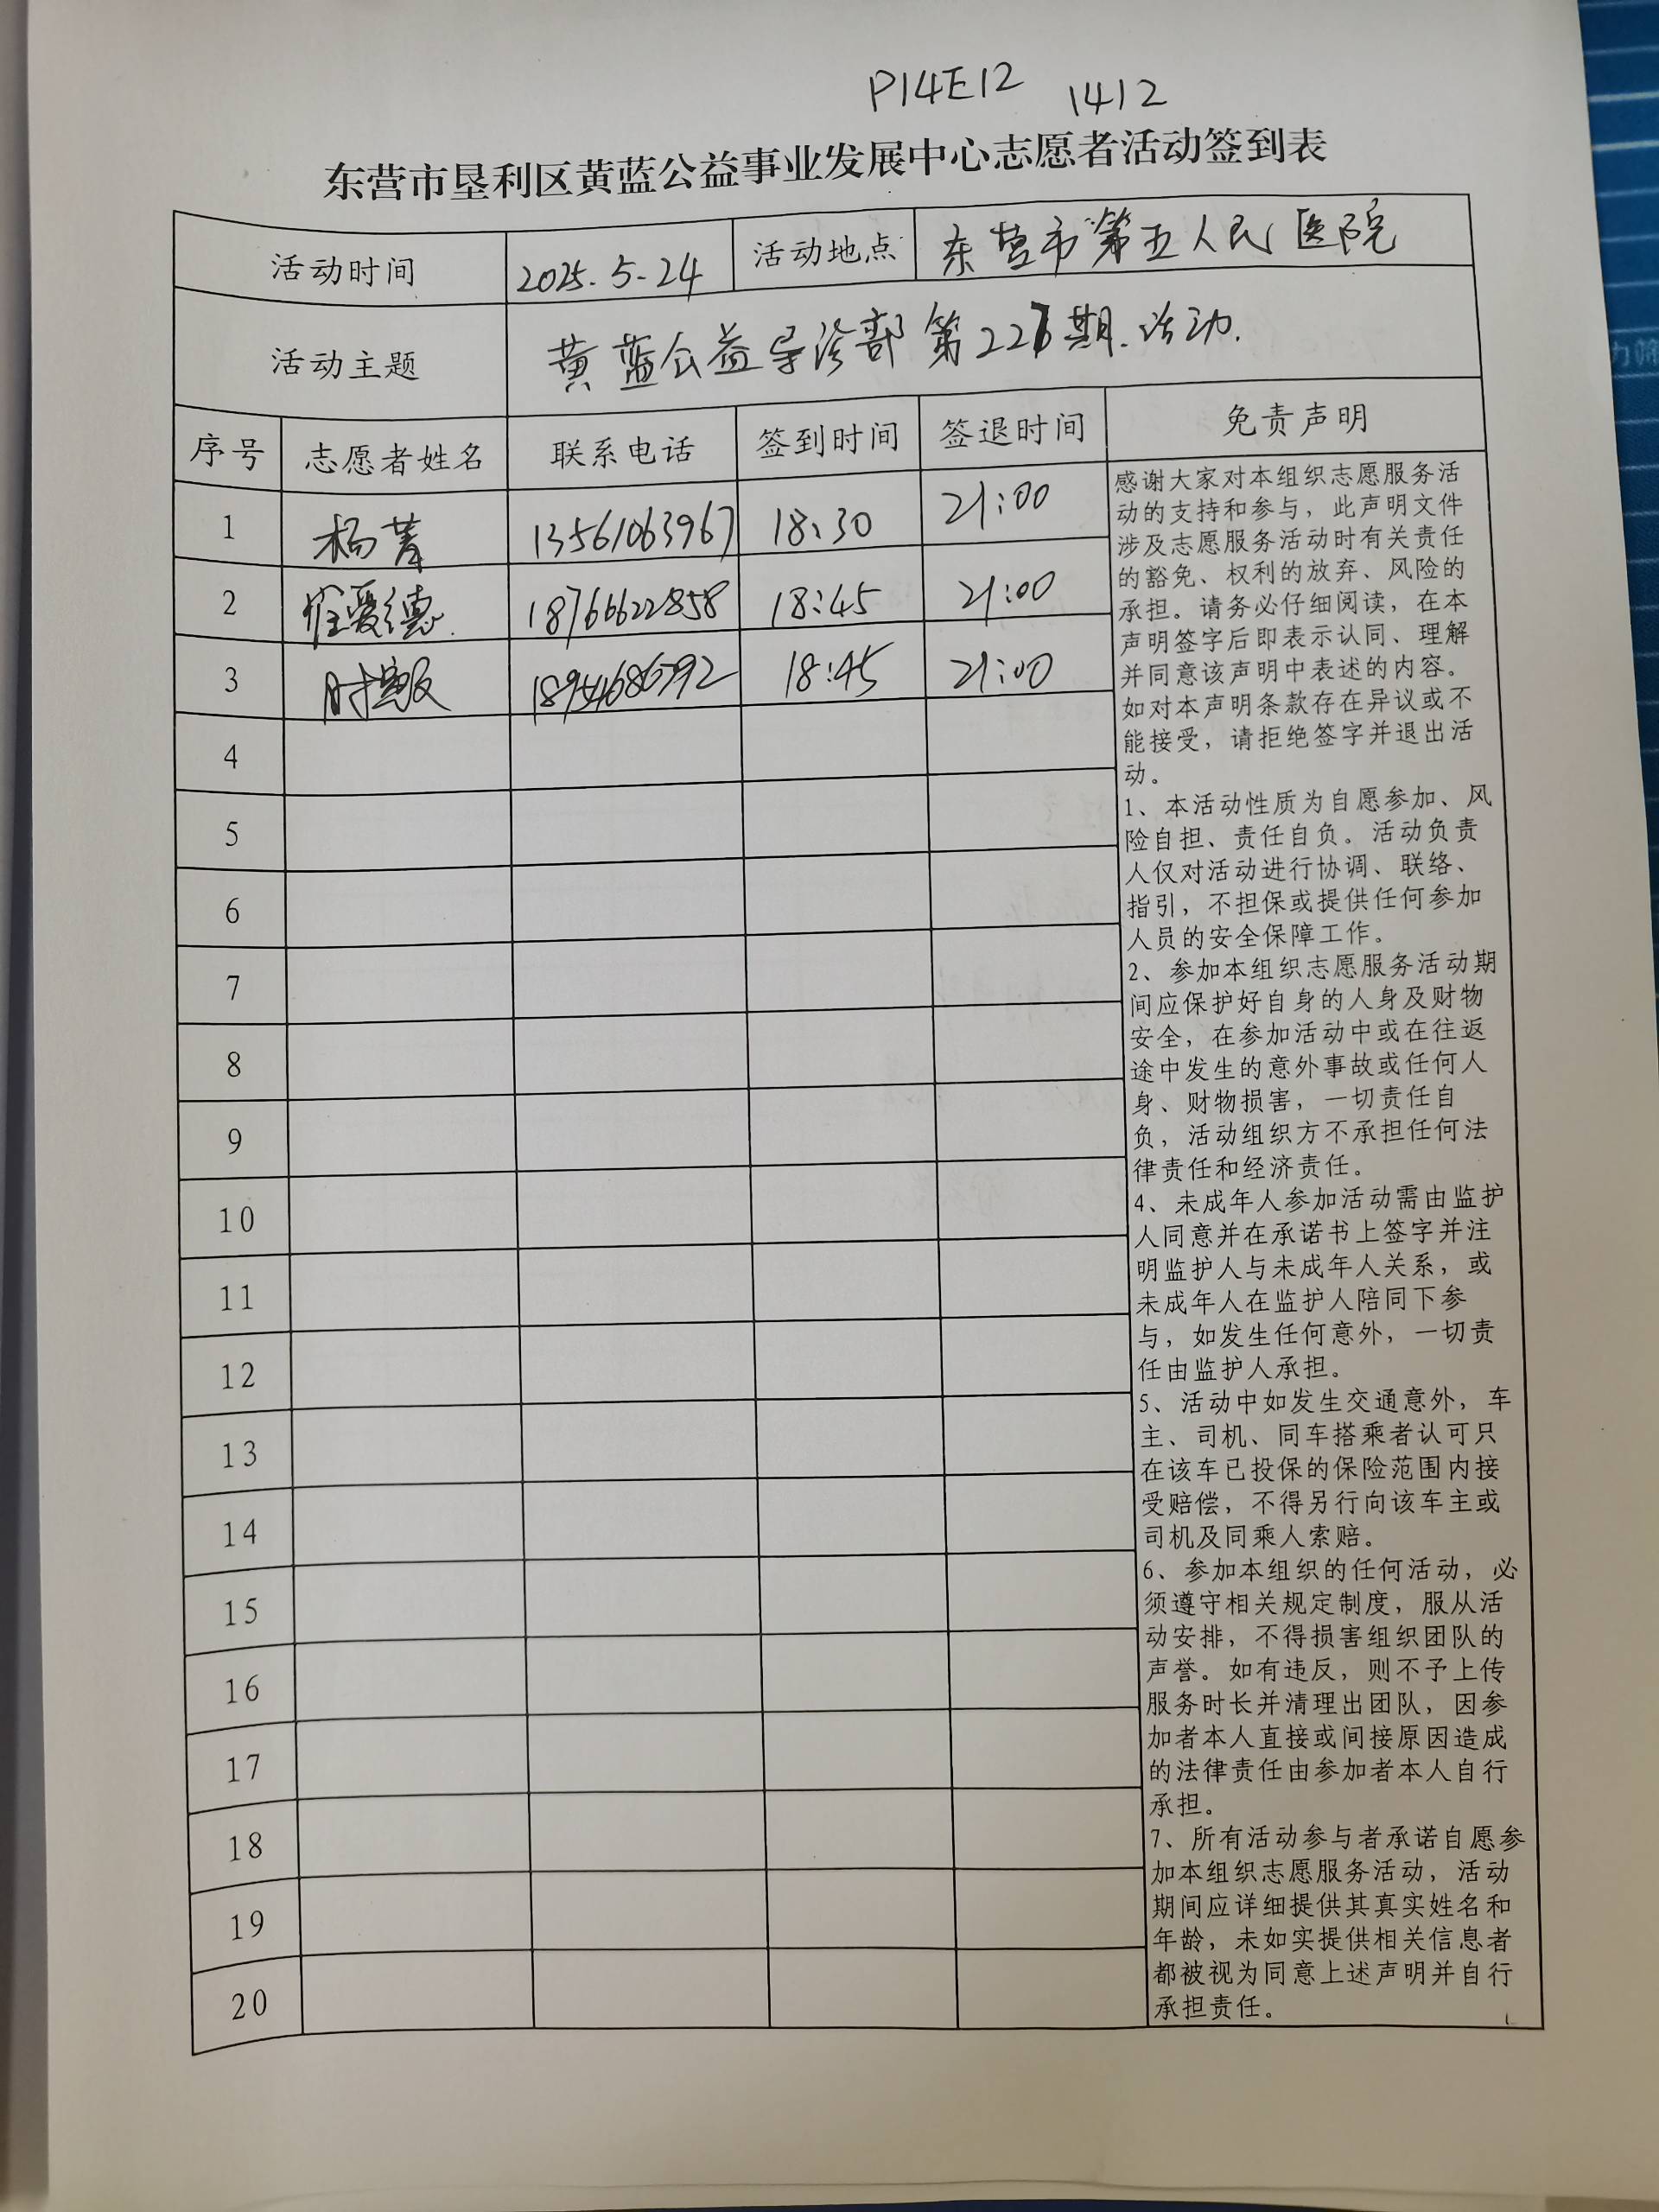 P14E12 1412
东营市垦利区黄蓝公益事业发展中心志愿者活动签到表
活动时间 2025.5-24 活动地点 东营市第五人民医院
活动主题 黄蓝公益导诊部第227期.活动.
序号 志愿者姓名 联系电话 签到时间 签退时间 免责声明
1 杨菁 13561063967 18:30 21:00
2 崔爱德 18766622858 18:45 21:00
3 18:45 21:00
4
5
6
7
8
9
10
11
12
13
14
15
16
17
18
19
20
感谢大家对本组织志愿服务活
动的支持和参与，此声明文件
涉及志愿服务活动时有关责任
的豁免、权利的放弃、风险的
承担。请务必仔细阅读，在本
声明签字后即表示认同、理解
并同意该声明中表述的内容。
如对本声明条款存在异议或不
能接受，请拒绝签字并退出活
动。
1、本活动性质为自愿参加、风
险自担、责任自负。活动负责
人仅对活动进行协调、联络、
指引，不担保或提供任何参加
人员的安全保障工作。
2、参加本组织志愿服务活动期
间应保护好自身的人身及财物
安全，在参加活动中或在往返
途中发生的意外事故或任何人
身、财物损害，一切责任自
负，活动组织方不承担任何法
律责任和经济责任。
4、未成年人参加活动需由监护
人同意并在承诺书上签字并注
明监护人与未成年人关系，或
未成年人在监护人陪同下参
与，如发生任何意外，一切责
任由监护人承担。
5、活动中如发生交通意外，车
主、司机、同车搭乘者认可只
在该车已投保的保险范围内接
受赔偿，不得另行向该车主或
司机及同乘人索赔。
6、参加本组织的任何活动，必
须遵守相关规定制度，服从活
动安排，不得损害组织团队的
声誉。如有违反，则不予上传
服务时长并清理出团队，因参
加者本人直接或间接原因造成
的法律责任由参加者本人自行
承担。
7、所有活动参与者承诺自愿参
加本组织志愿服务活动，活动
期间应详细提供其真实姓名和
年龄，未如实提供相关信息者
都被视为同意上述声明并自行
承担责任。